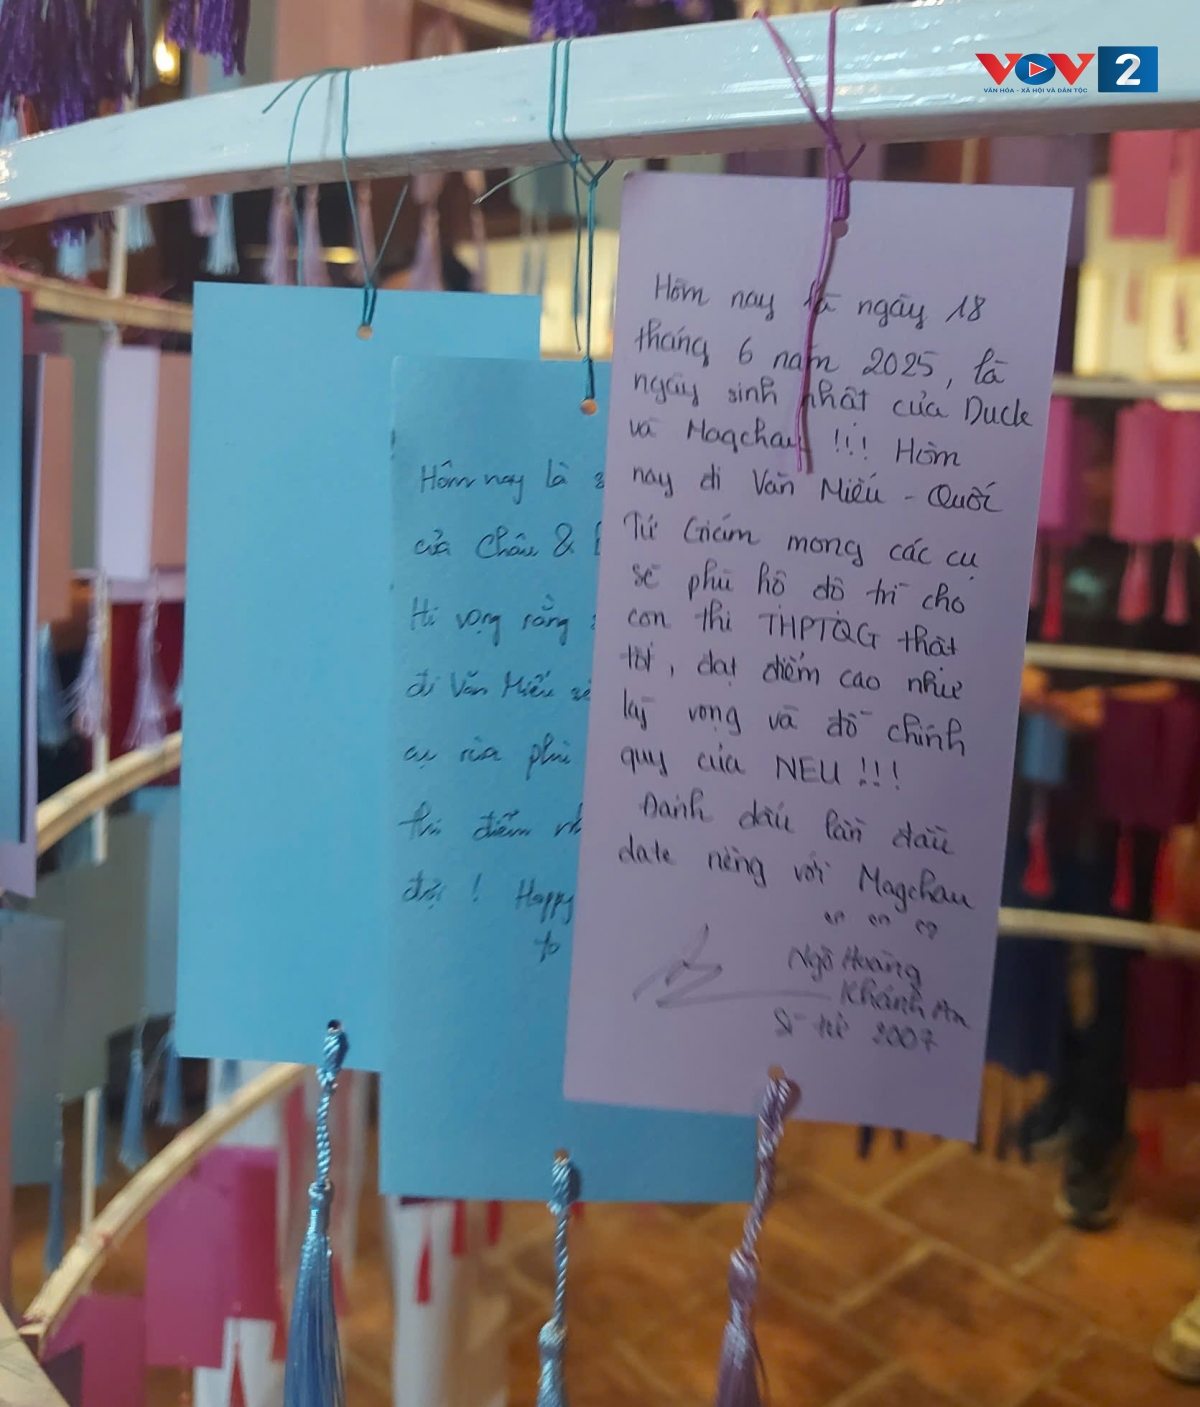 VOV 2
VĂN HÓA - XÃ HỘI VÀ DÂN TỘC
Hôm nay là
của Châu &
Hi vọng rằng
đi Văn Miếu
cụ rùa phù
thi điểm
đợi ! Happy
to
Hôm nay là ngày 18
tháng 6 năm 2025, là
ngày sinh nhật của Duck
và Magchau !!! Hôm
nay đi Văn Miếu - Quốc
Tử Giám mong các cụ
sẽ phù hộ độ trì cho
con thi THPTQG thật
tốt, đạt điểm cao như
kỳ vọng và đỗ chính
quy của NEU !!!
Đánh dấu lần đầu
date riêng với Magchau
Ngô Hoàng
Khánh An
Sĩ tử 2007